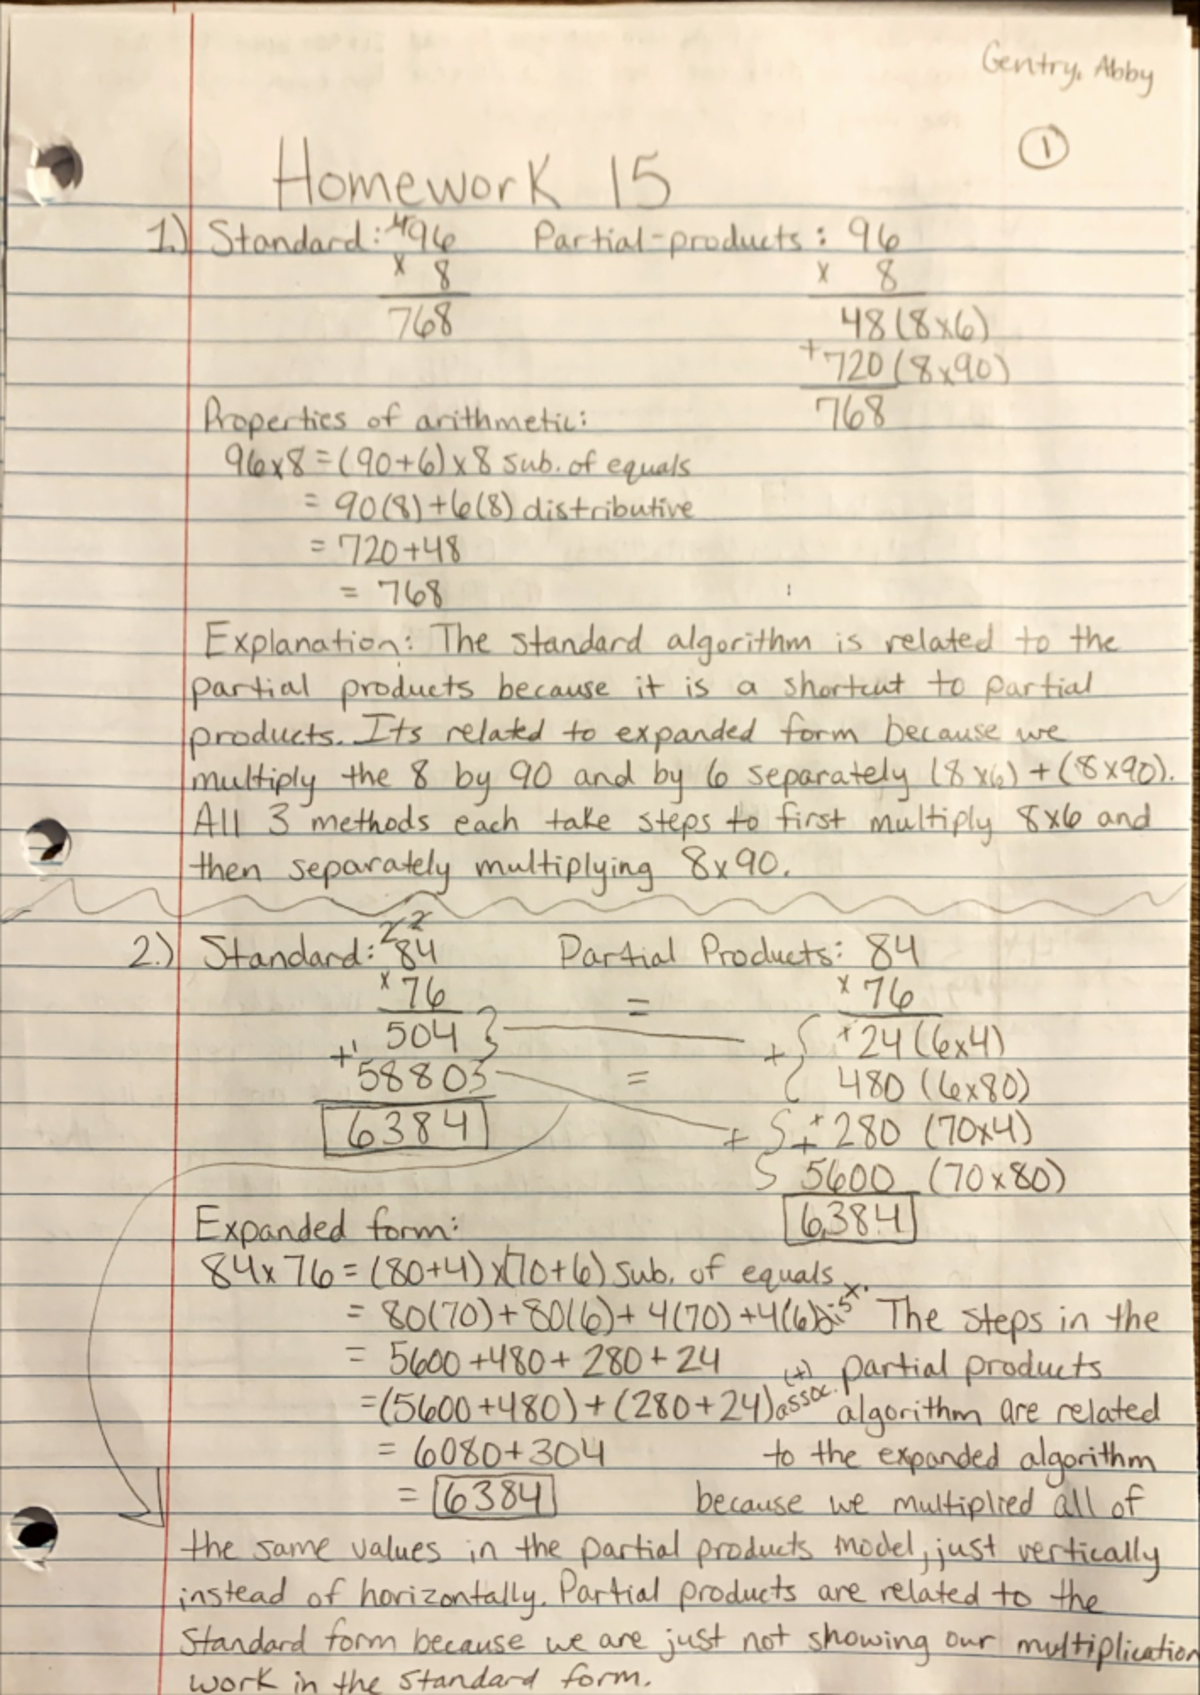 Gentry, Abby
1
Homework 15
1.) Standard: 4 96 Partial-products: 96
x 8 x 8
768 48 (8x6)
+720 (8x90)
768
Properties of arithmetic:
96x8 = (90+6)x8 sub. of equals
= 90(8)+6(8) distributive
= 720+48
= 768
Explanation: The standard algorithm is related to the
partial products because it is a shortcut to partial
products. Its related to expanded form because we
multiply the 8 by 90 and by 6 separately (8x6)+(8x90).
All 3 methods each take steps to first multiply 8x6 and
then separately multiplying 8x90.
2 2
2.) Standard: 84 Partial Products: 84
x 76 = x 76
504 + 24 (6x4)
+ 5880 = 480 (6x80)
6384 + 280 (70x4)
5600 (70x80)
6384
Expanded form:
84x76 = (80+4)x(70+6) sub. of equals
= 80(70)+80(6)+4(70)+4(6) dist. The steps in the
= 5600+480+280+24 partial products
=(5600+480)+(280+24) (+) assoc. algorithm are related
= 6080+304 to the expanded algorithm
= 6384 because we multiplied all of
the same values in the partial products model, just vertically
instead of horizontally. Partial products are related to the
Standard form because we are just not showing our multiplication
work in the standard form.